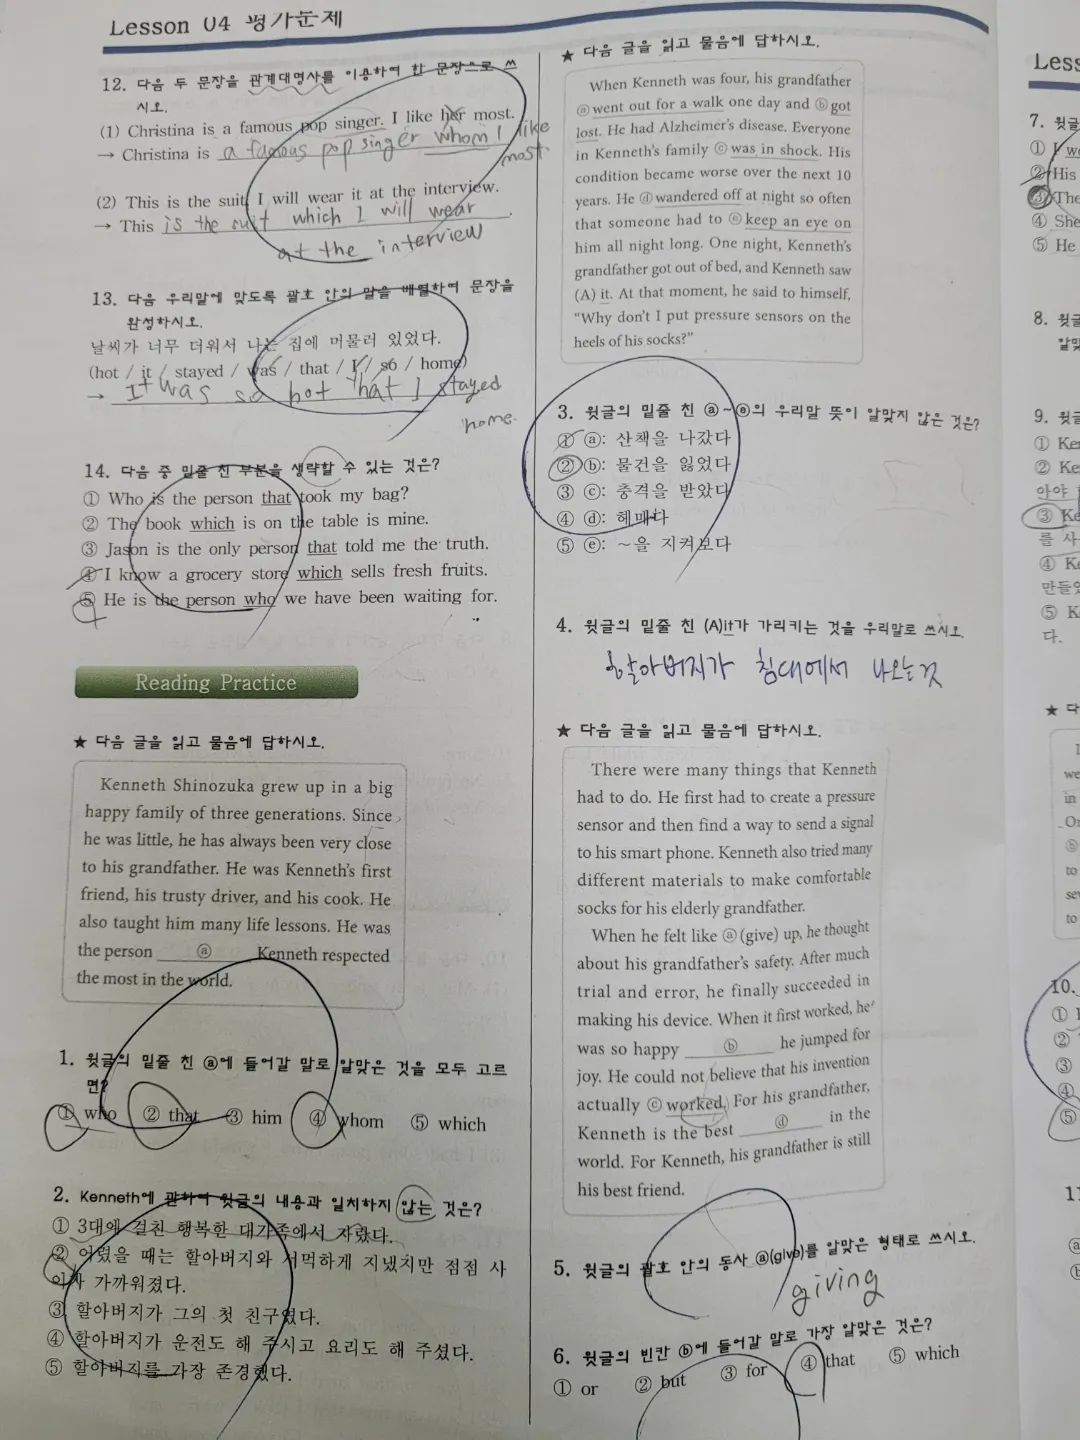 Lesson 04 평가문제
12. 다음 두 문장을 관계대명사를 이용하여 한 문장으로 쓰
시오.
(1) Christina is a famous pop singer. I like her most.
→ Christina is a famous pop singer whom I like
most.
(2) This is the suit. I will wear it at the interview.
→ This is the suit which I will wear
at the interview
13. 다음 우리말에 맞도록 괄호 안의 말을 배열하여 문장을
완성하시오.
날씨가 너무 더워서 나는 집에 머물러 있었다.
(hot / it / stayed / was / that / I / so / home)
→ It was so hot that I stayed
home.
14. 다음 중 밑줄 친 부분을 생략할 수 있는 것은?
① Who is the person that took my bag?
② The book which is on the table is mine.
③ Jason is the only person that told me the truth.
④ I know a grocery store which sells fresh fruits.
⑤ He is the person who we have been waiting for.
Reading Practice
★ 다음 글을 읽고 물음에 답하시오.
Kenneth Shinozuka grew up in a big
happy family of three generations. Since
he was little, he has always been very close
to his grandfather. He was Kenneth's first
friend, his trusty driver, and his cook. He
also taught him many life lessons. He was
the person ⓐ Kenneth respected
the most in the world.
1. 윗글의 밑줄 친 ⓐ에 들어갈 말로 알맞은 것을 모두 고르
면?
① who ② that ③ him ④ whom ⑤ which
2. Kenneth에 관하여 윗글의 내용과 일치하지 않는 것은?
① 3대에 걸친 행복한 대가족에서 자랐다.
② 어렸을 때는 할아버지와 서먹하게 지냈지만 점점 사
이가 가까워졌다.
③ 할아버지가 그의 첫 친구였다.
④ 할아버지가 운전도 해 주시고 요리도 해 주셨다.
⑤ 할아버지를 가장 존경했다.
★ 다음 글을 읽고 물음에 답하시오.
When Kenneth was four, his grandfather
ⓐ went out for a walk one day and ⓑ got
lost. He had Alzheimer's disease. Everyone
in Kenneth's family ⓒ was in shock. His
condition became worse over the next 10
years. He ⓓ wandered off at night so often
that someone had to ⓔ keep an eye on
him all night long. One night, Kenneth's
grandfather got out of bed, and Kenneth saw
(A) it. At that moment, he said to himself,
"Why don't I put pressure sensors on the
heels of his socks?"
3. 윗글의 밑줄 친 ⓐ~ⓔ의 우리말 뜻이 알맞지 않은 것은?
① ⓐ: 산책을 나갔다
② ⓑ: 물건을 잃었다
③ ⓒ: 충격을 받았다
④ ⓓ: 헤매다
⑤ ⓔ: ~을 지켜보다
4. 윗글의 밑줄 친 (A)it가 가리키는 것을 우리말로 쓰시오.
할아버지가 침대에서 나오는것
★ 다음 글을 읽고 물음에 답하시오.
There were many things that Kenneth
had to do. He first had to create a pressure
sensor and then find a way to send a signal
to his smart phone. Kenneth also tried many
different materials to make comfortable
socks for his elderly grandfather.
When he felt like ⓐ (give) up, he thought
about his grandfather's safety. After much
trial and error, he finally succeeded in
making his device. When it first worked, he
was so happy ⓑ he jumped for
joy. He could not believe that his invention
actually ⓒ worked. For his grandfather,
Kenneth is the best ⓓ in the
world. For Kenneth, his grandfather is still
his best friend.
5. 윗글의 괄호 안의 동사 ⓐ(give)를 알맞은 형태로 쓰시오.
giving
6. 윗글의 빈칸 ⓑ에 들어갈 말로 가장 알맞은 것은?
① or ② but ③ for ④ that ⑤ which
7. 윗글
②His
③The
④ She
⑤ He
8. 윗글
9. 윗글
① Ke
② Ke
③ Ke
를 사
④ Ke
만들었
다.
★ 다
we
in
to
to
10.
①
②
③
④
⑤
11